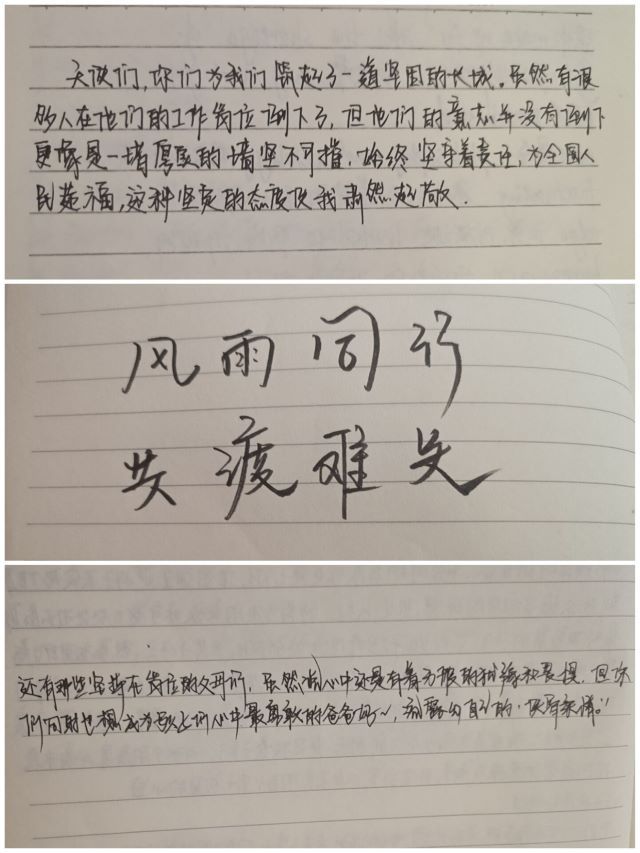 天使们,你们为我们筑起了一道坚固的长城。虽然有很
多人在他们的工作岗位倒下了,但他们的意志并没有倒下
更像是一堵厚厚的墙坚不可摧,始终坚守着责任,为全国人
民造福,这种坚定的态度使我肃然起敬.
风雨同行
共渡难关
还有那些坚守在岗位的父母们,虽然内心中还是有着万般的犹豫和畏惧,但你
们同时也想成为孩子们心中最勇敢的爸爸妈妈,